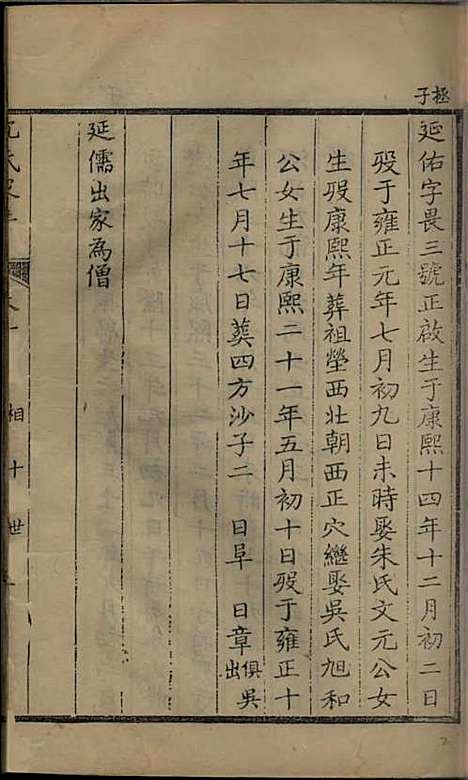 極子
延佑字畏三號正啟生于康熙十四年十二月初二日
歿于雍正元年七月初九日未時娶朱氏文元公女
生歿康熙年葬祖塋西壯朝西正穴繼娶吳氏旭和
公女生于康熙二十一年五月初十日歿于雍正十
年七月十七日葬四方沙子二 日阜 日章俱吳出
延儒出家為僧
相十世